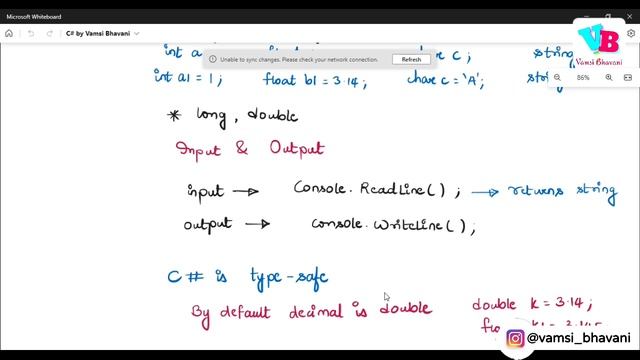 Microsoft Whiteboard
C# by Vamsi Bhavani
VB
Vamsi Bhavani
Unable to sync changes. Please check your network connection.
Refresh
86%
int a char c ;
int a1 = 1 ; float b1 = 3.14 ; char c = 'A' ;
* long , double
Input & Output
input → Console.ReadLine() ; → returns string
output → Console.WriteLine() ;
C# is type-safe
By default decimal is double double k = 3.14 ;
@vamsi_bhavani